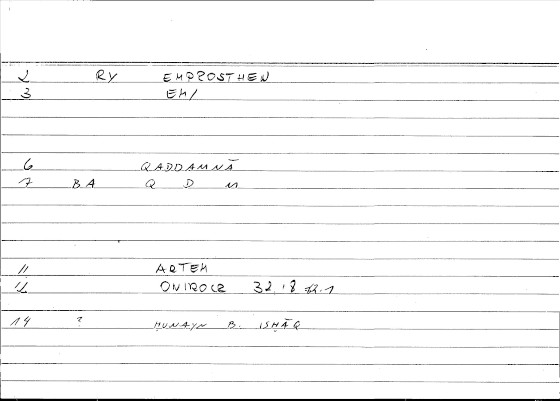 2 RY EMPROSTHEN
3 EM/
6 QADDAMNĀ
7 BA Q D M
11 ARTEM
12 ONIROCR 32.8
14 ? ḤUNAYN B. ISḤĀQ